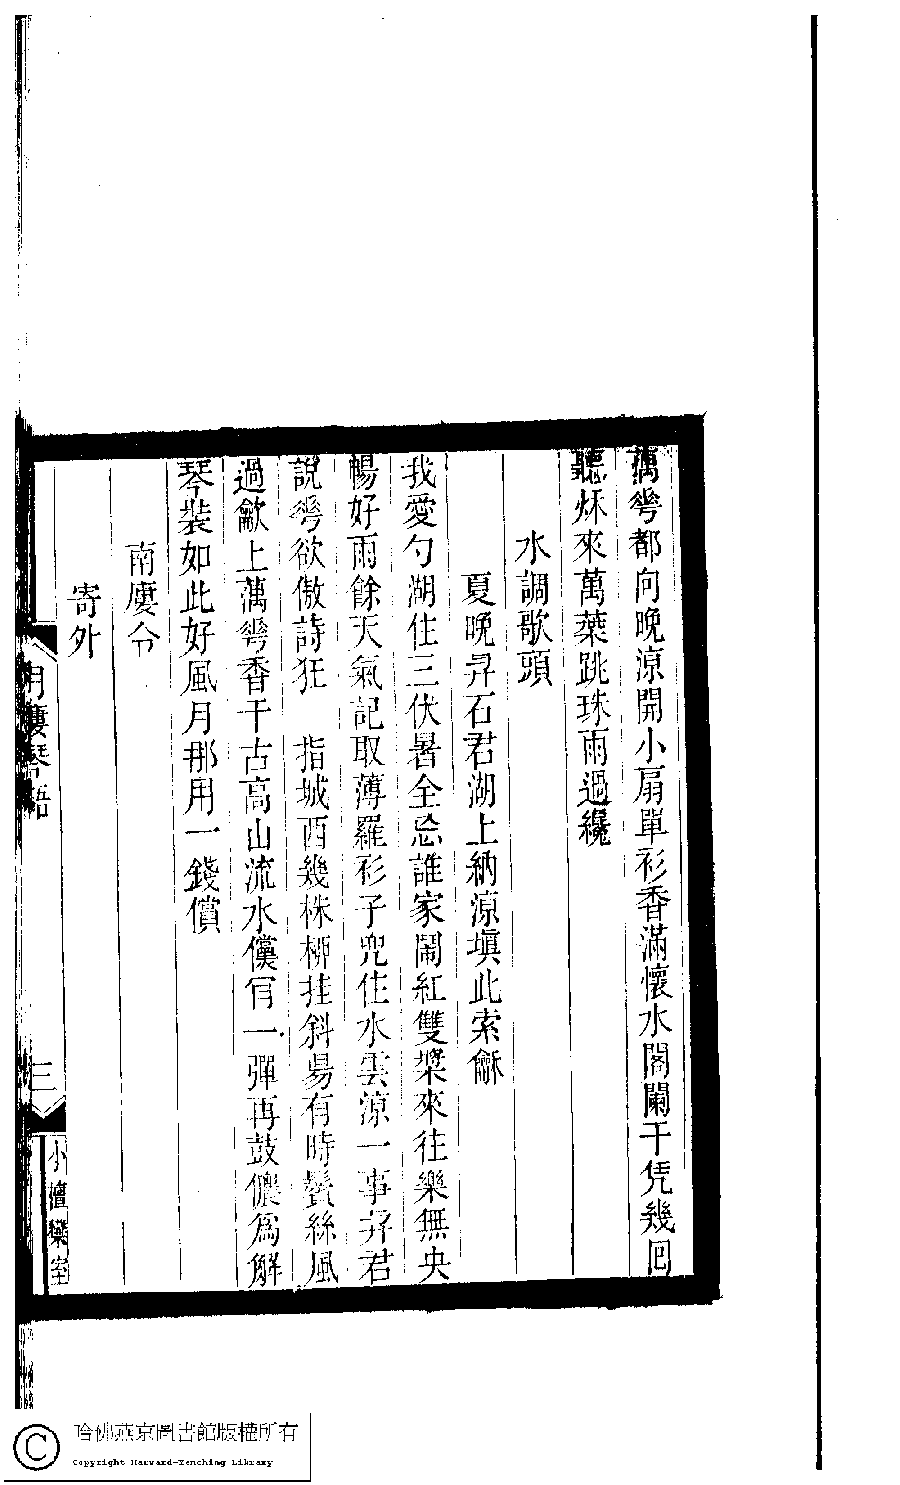 藕花都向晚涼開小扇單衫香滿懷水閣闌干凭幾回
聽秌來萬葉跳珠雨過纔
水調歌頭
夏晚昇石君湖上納涼塡此索龢
我愛勺湖住三伏暑全忘誰家鬧紅雙槳來往樂無央
暢好雨餘天氣記取薄羅衫子兜住水雲涼一事昇君
說花欲傲詩狂　指城西幾株柳挂斜昜有時鬢絲風
過歈上藕花香千古高山流水儻肎一彈再鼓儂爲解
琴裝如此好風月那用一錢償
南廔令
寄外
月廔琴語
三
小檀欒室
哈佛燕京圖書館版權所有
Copyright Harvard-Yenching Library